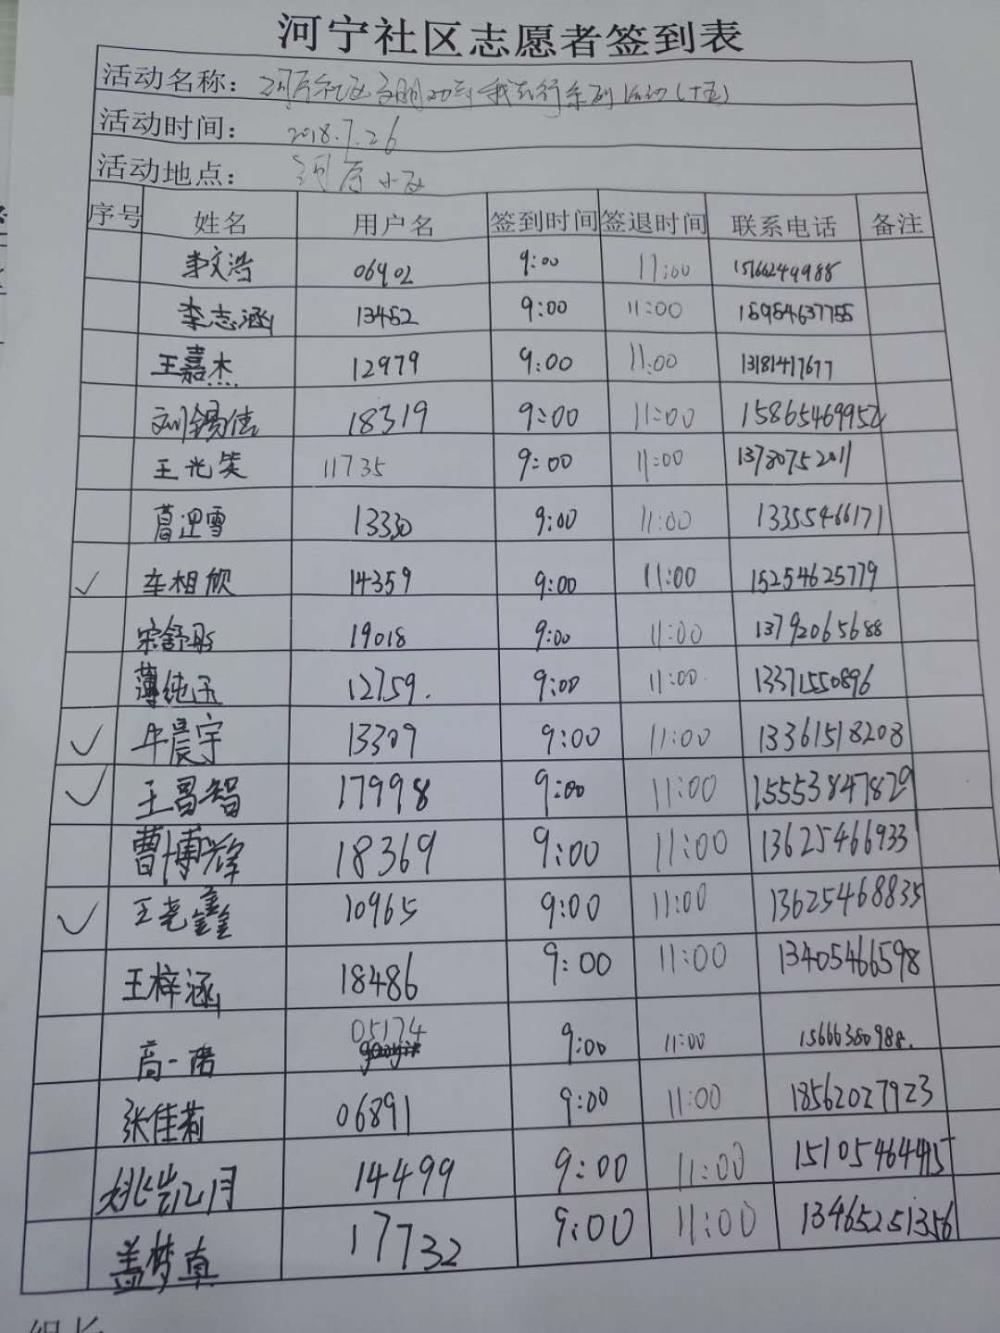 河宁社区志愿者签到表
活动名称：我先行系列活动(十五)
活动时间：2018.7.26
活动地点：小区
序号 姓名 用户名 签到时间 签退时间 联系电话 备注
李文浩 06902 9:00 11:00
李志涵 13452 9:00 11:00 15954637755
王嘉杰 12979 9:00 11:00 13181417677
刘锡信 18319 9:00 11:00 15865469952
王光笑 11735 9:00 11:00 13780752011
13330 9:00 11:00 13355466171
✓ 车相欣 14359 9:00 11:00 15254625779
宋舒彤 19018 9:00 11:00 13792065688
薄纯玉 12759. 9:00 11:00 13371550896
✓ 牛晨宇 13309 9:00 11:00 13361518208
✓ 王晋智 17998 9:00 11:00 15553847829
曹博辉 18369 9:00 11:00 13625466933
✓ 王尧鑫 10965 9:00 11:00 13625468835
王梓涵 18486 9:00 11:00 13405466598
高一诺 05174 9:00 11:00 15666380988.
张佳莉 06891 9:00 11:00 18562027923
姚岩月 14499 9:00 11:00 15105464495
盖梦真 17732 9:00 11:00 13465251356
组长